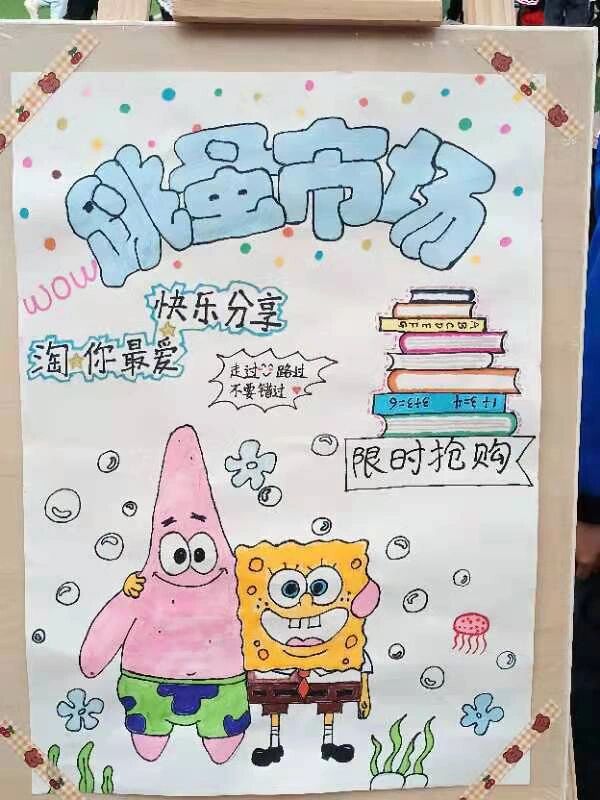 跳蚤市场
WOW
快乐分享
淘你最爱
走过路过
不要错过
ABCDEFG
1+3=4 3+3=6
限时抢购